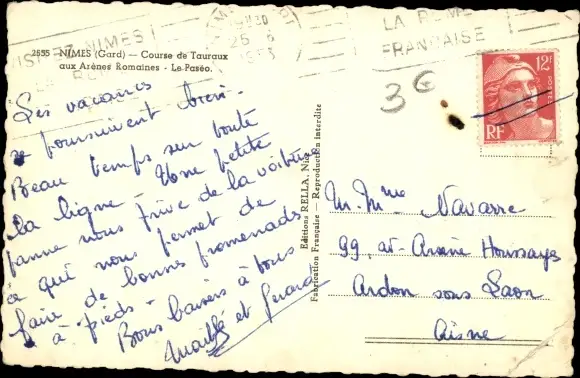 VISITEZ NIMES
25 - 6
1953
LA ROME
FRANÇAISE
2555 - NIMES (Gard) — Course de Tauraux
aux Arènes Romaines - Le Paséo.
3€
12F
POSTES
RF
Les vacances
se poursuivent bien.
Beau temps sur toute
la ligne - Une petite
panne nous prive de la voiture
ce qui nous permet de
faire de bonnes promenades
à pieds -
Bons baisers à tous
et Gérard
Editions RELLA, Nice
Fabrication Française — Reproduction interdite
M. Mme Navarre
99, av. Arsène Houssaye
Ardon sous Laon
Aisne